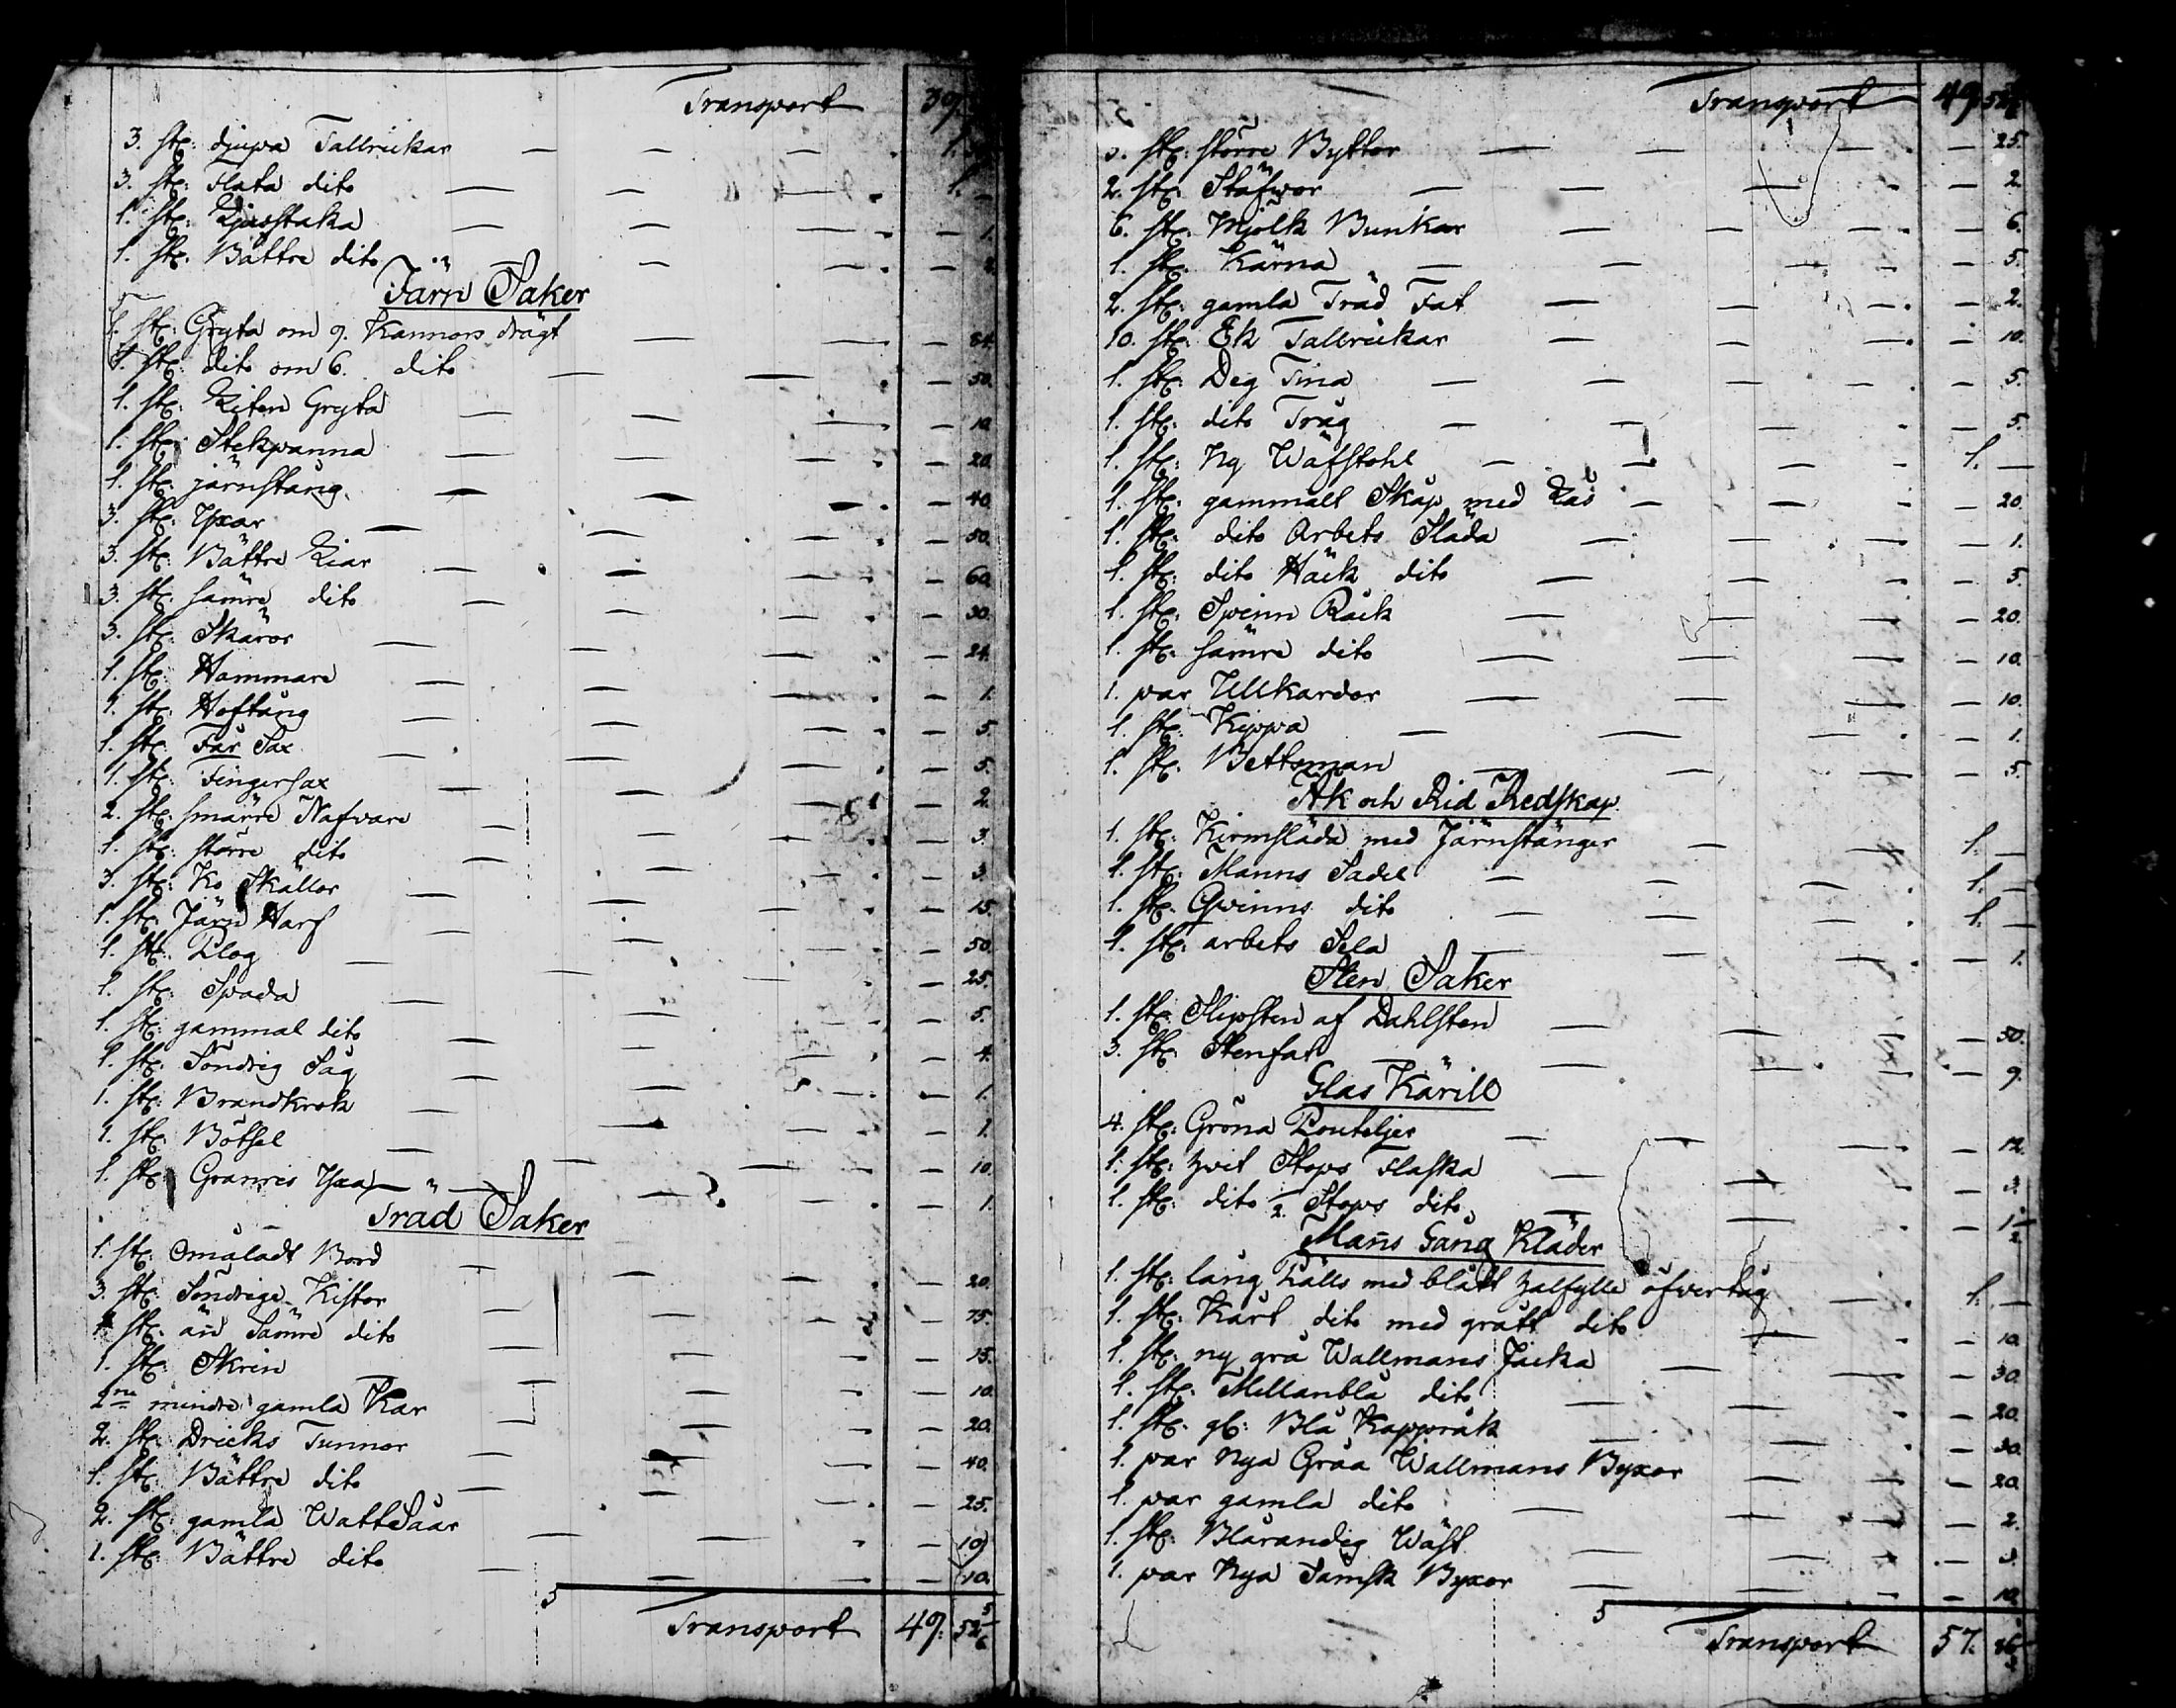 Transport 39.
3. st: djupa Tallrickar 1.
3. st: Flata dito 1. —
1. st: Ljusstaka — 1.
1. st: Bättre dito —
Järn Saker
1. st: Gryta om 9. Kannors drägt — 84.
1. st: dito om 6. dito — 50.
1. st: Liten Gryta — 10.
1. st: Stekpanna — 20.
1. st: järnstång — 40.
3. st: Yxor — 50.
3. st: Bättre Liar — 60.
3. st: sämre dito — 30.
3. st: Skäror — 24.
1. st: Hammare — 1.
1. st: Hoftång — 5.
1. st: Får Sax — 5.
1. st: Fingersax — 2.
2. st: smärre Nafvare — 3.
1. st: större dito — 3.
3. st: Ko Skällor — 15.
1. st: Järn Harf — 50.
1. st: Plog — 25.
1. st: Spada — 5.
1. st: gammal dito — 4.
1. st: Söndrig Såg — 1.
1. st: Brandkrok — 1.
1. st: Bötsel — 10.
1. st: Granris Yxa — 1.
Träd Saker
1. st: Omåladt Bord — 20.
3. st: Söndriga Kistor — 75.
1. st: än Sämre dito — 15.
1. st: Skrin — 10.
2ne mindre gamla Kar — 20.
2. st: Dricks Tunnor — 40.
1. st: Bättre dito — 25.
2. st: gamla Watt Såar — 10
1. st: Bättre dito — 10.
Transport 49. 52 5/6
Transport 49 52 5/6
3. st: större Byttor — 25.
2. st: Stäfwor — 2.
6. st: Mjölk Bunkar — 6.
1. st: Kärna — 5.
2. st: gamla Träd Fat — 2.
10. st: Ek Tallrickar — 10.
1. st: Deg Tina — 5.
1. st: dito Tråg — 5.
1. st: Ny Wäfstohl 1. —
1. st: gammalt Skåp med Lås — 20.
1. st: dito Arbets Släda — 1.
1. st: dito Häck dito — 5.
1. st: Spinn Råck — 20.
1. st: sämre dito — 10.
1. par Ullkardor — 10.
1. st: Kippa — 1.
1. st: Bettsman — 5.
Åk och Rid Redskap
1. st: Kirmsläda med Järnstänger 1. —
1. st: Manns Sadel 1. —
1. st: Qvinns dito 1. —
1. st: arbets Sela — 1.
Sten Saker
1. st: Slipsten af Dahlsten — 50.
3. st: Stenfat — 9.
Glas Kärill
4. st: Gröna Bouteljer — 12.
1. st: hvit Stops Flaska — 3.
1. st: dito 1/2 Stops dito — 1 1/2
Mans Gång Kläder
1. st: lång Pälls med blått halfylle öfvertåg 1. —
1. st: Kårt dito med grått dito — 10.
1. st: ny grå Wallmans Jacka — 30.
1. st: Mellanblå dito — 20.
1. st: gl: Blå Kappråck — 30.
1. par Nya Gråa Wallmans Byxor — 20.
1. par gamla dito — 2.
1. st: Blårandig Wäst — 3.
1. par Nya Sämsk Byxor — 10.
Transport 57.